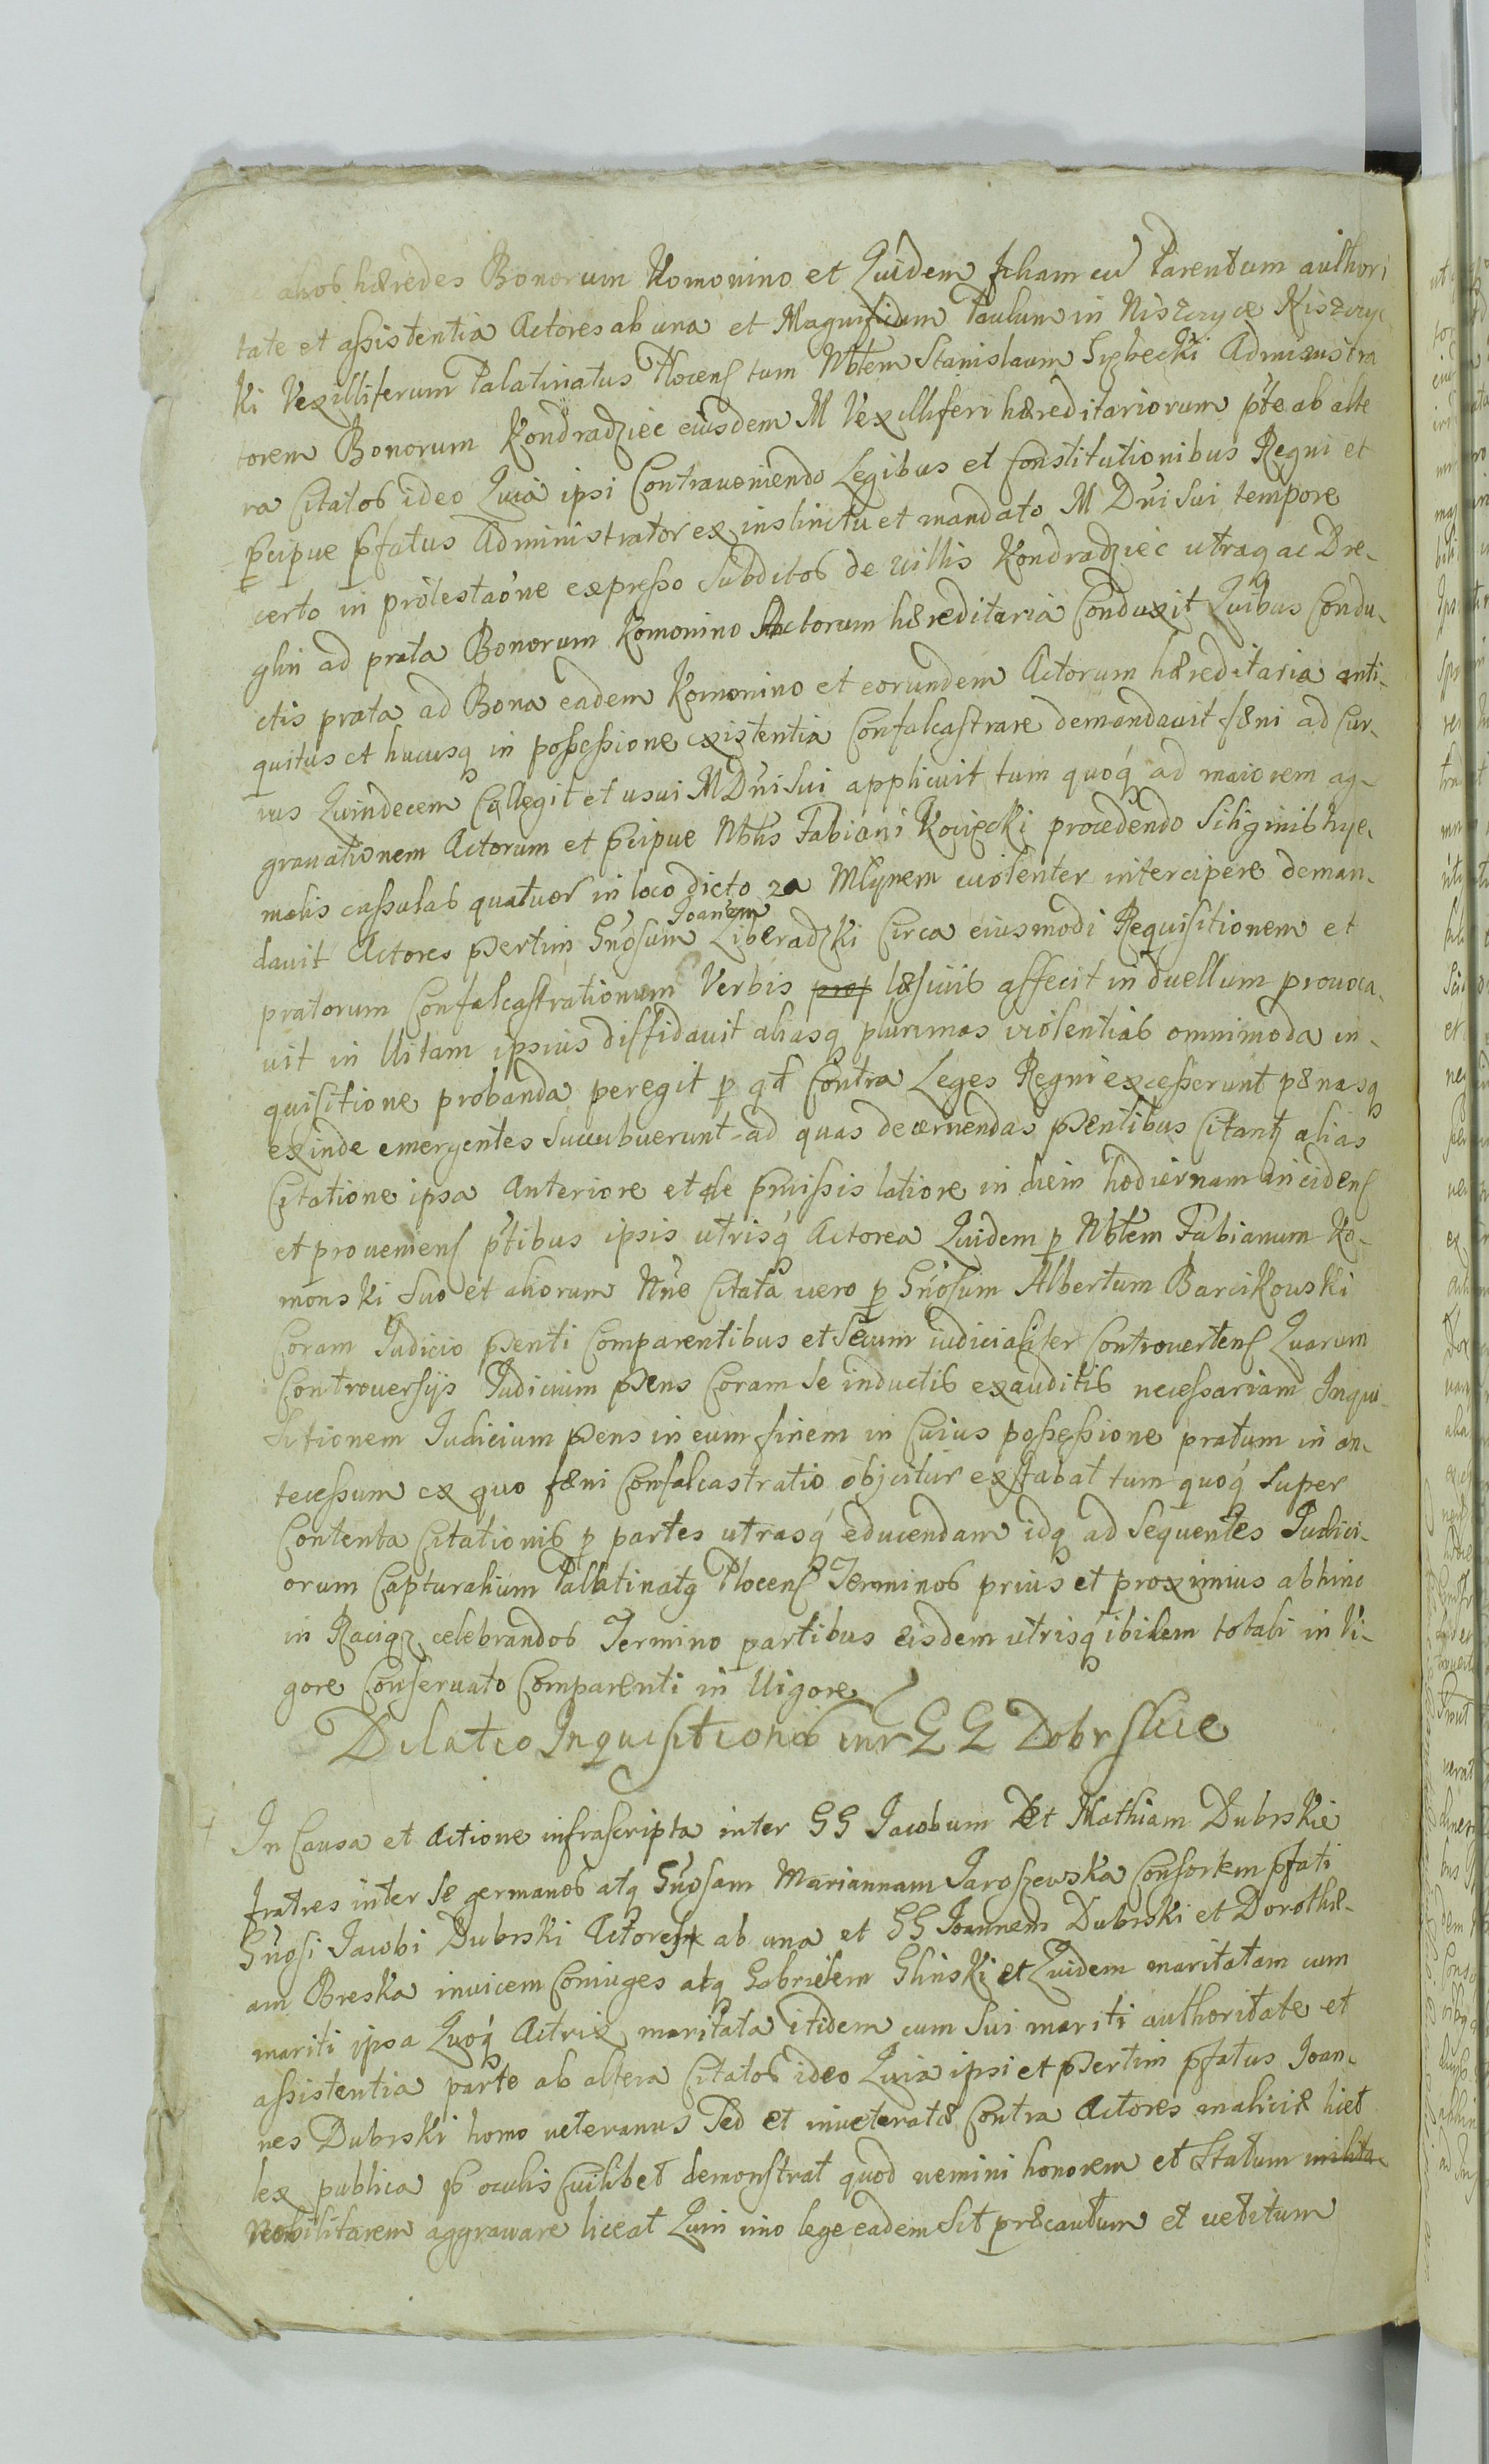 alios hæredes Bonorum Komonino et Quidem filiam cū Parentum authori
tate et assistentia Actores ab una et Magnificum Paulum in Niszczyce Niszczyc
ki Vexilliferum Palatinatus Plocens tum Nbtem Stanislaum Administra
torem Bonorum Kondradziec eiusdem M Vexilliferi hæreditariorum pte ab alte
ra Citatos ideo Quia ipsi Contraveniendo Legibus et Constitutionibus Regni et
pcipue pfatus Administrator ex instinctu et mandato M Dni sui tempore
certo in protestaōne expresso subditos de villis Kondradziec utraq ac Dre
glin ad prata Bonorum Komonino Actorum hæreditaria Conduxit Quibus Condu
ctis prata ad Bona eadem Komonino et eorundem Actorum hæreditaria anti
quitus et hucusq in possessione existentia Confalcastrare demandavit fæni ad Cur
rus Quindecem Collegit et usui M Dni sui applicuit tum quoq ad maiorem ag
gravationem Actorum et pcipue Nbtis Fabiani procedendo siliginis hye
malis cassulas quatuor in loco dicto za Młynem violenter intercipere deman
davit Actores psertim Gnosum Joanem Liberadzki Circa eiusmodi Requisitionem et
pratorum Confalcastrationum Verbis læsivis affecit in duellum provoca
vit in Vitam ipsius diffidavit aliasq plurimas violentias omnimoda in
quisitione probanda peregit p qd Contra Leges Regni excesserunt pænasq
exinde emergentes succubuerunt ad quas decernendas psentibus Citantq alias
Citatione ipsa Anteriore et de pmissis latiore in diem hodiernam inciden
et provenien ptibus ipsis utrisq Actorea Quidem p Nbtem Fabianum Ko
monski suo et aliorum Nne Citata vero p Gnosum Albertum Barcikowski
Coram Judicio psenti Comparentibus et secum iudicialiter Controverten Quarum
Controversijs Judicium psens Coram se inductis exauditis necessariam Inqui
sitionem Judicium psens in eum finem in Cuius possessione pratum in an
tecessum ex quo fæni Confalcastratio objcitur exstabat tum quoq super
Contenta Citationis p partes utrasq educendam idq ad sequentes Judici
orum Capturalium Pallatinatq Plocens Terminos prius et proximius abhinc
in Raciąz celebrandos Termino partibus eisdem utrisq ibidem totali in Vi
gore Conservato Comparenti in Vigore
Dilatio Inquisitionis intr G G Dobrskie
In Causa et Actione infrascripta inter GG Jacobum Et Mathiam Dubrskie
fratres inter se germanos atq Gnosam Mariannam Jaroszewska Consortem pfati
Gnosi Jacobi Dubrski Actores ab una et GG Joannem Dubrski et Dorothe
am Breska invicem Coniuges atq Gabrielem Glinski et Quidem maritatam cum
mariti ipsa Quoq Actrix maritata itidem cum sui mariti authoritate et
assistentia parte ab altera Citatos ideo Quia ipsi et psertim pfatus Joan
nes Dubrski homo veteranus sed et inveteratæ Contra Actores maliciæ licet
lex publica p oculis Cuilibet demonstrat quod nemini honorem et statum milita
nobilitarem aggravare liceat Quin imo lege eadem sit præcautum et vetitum